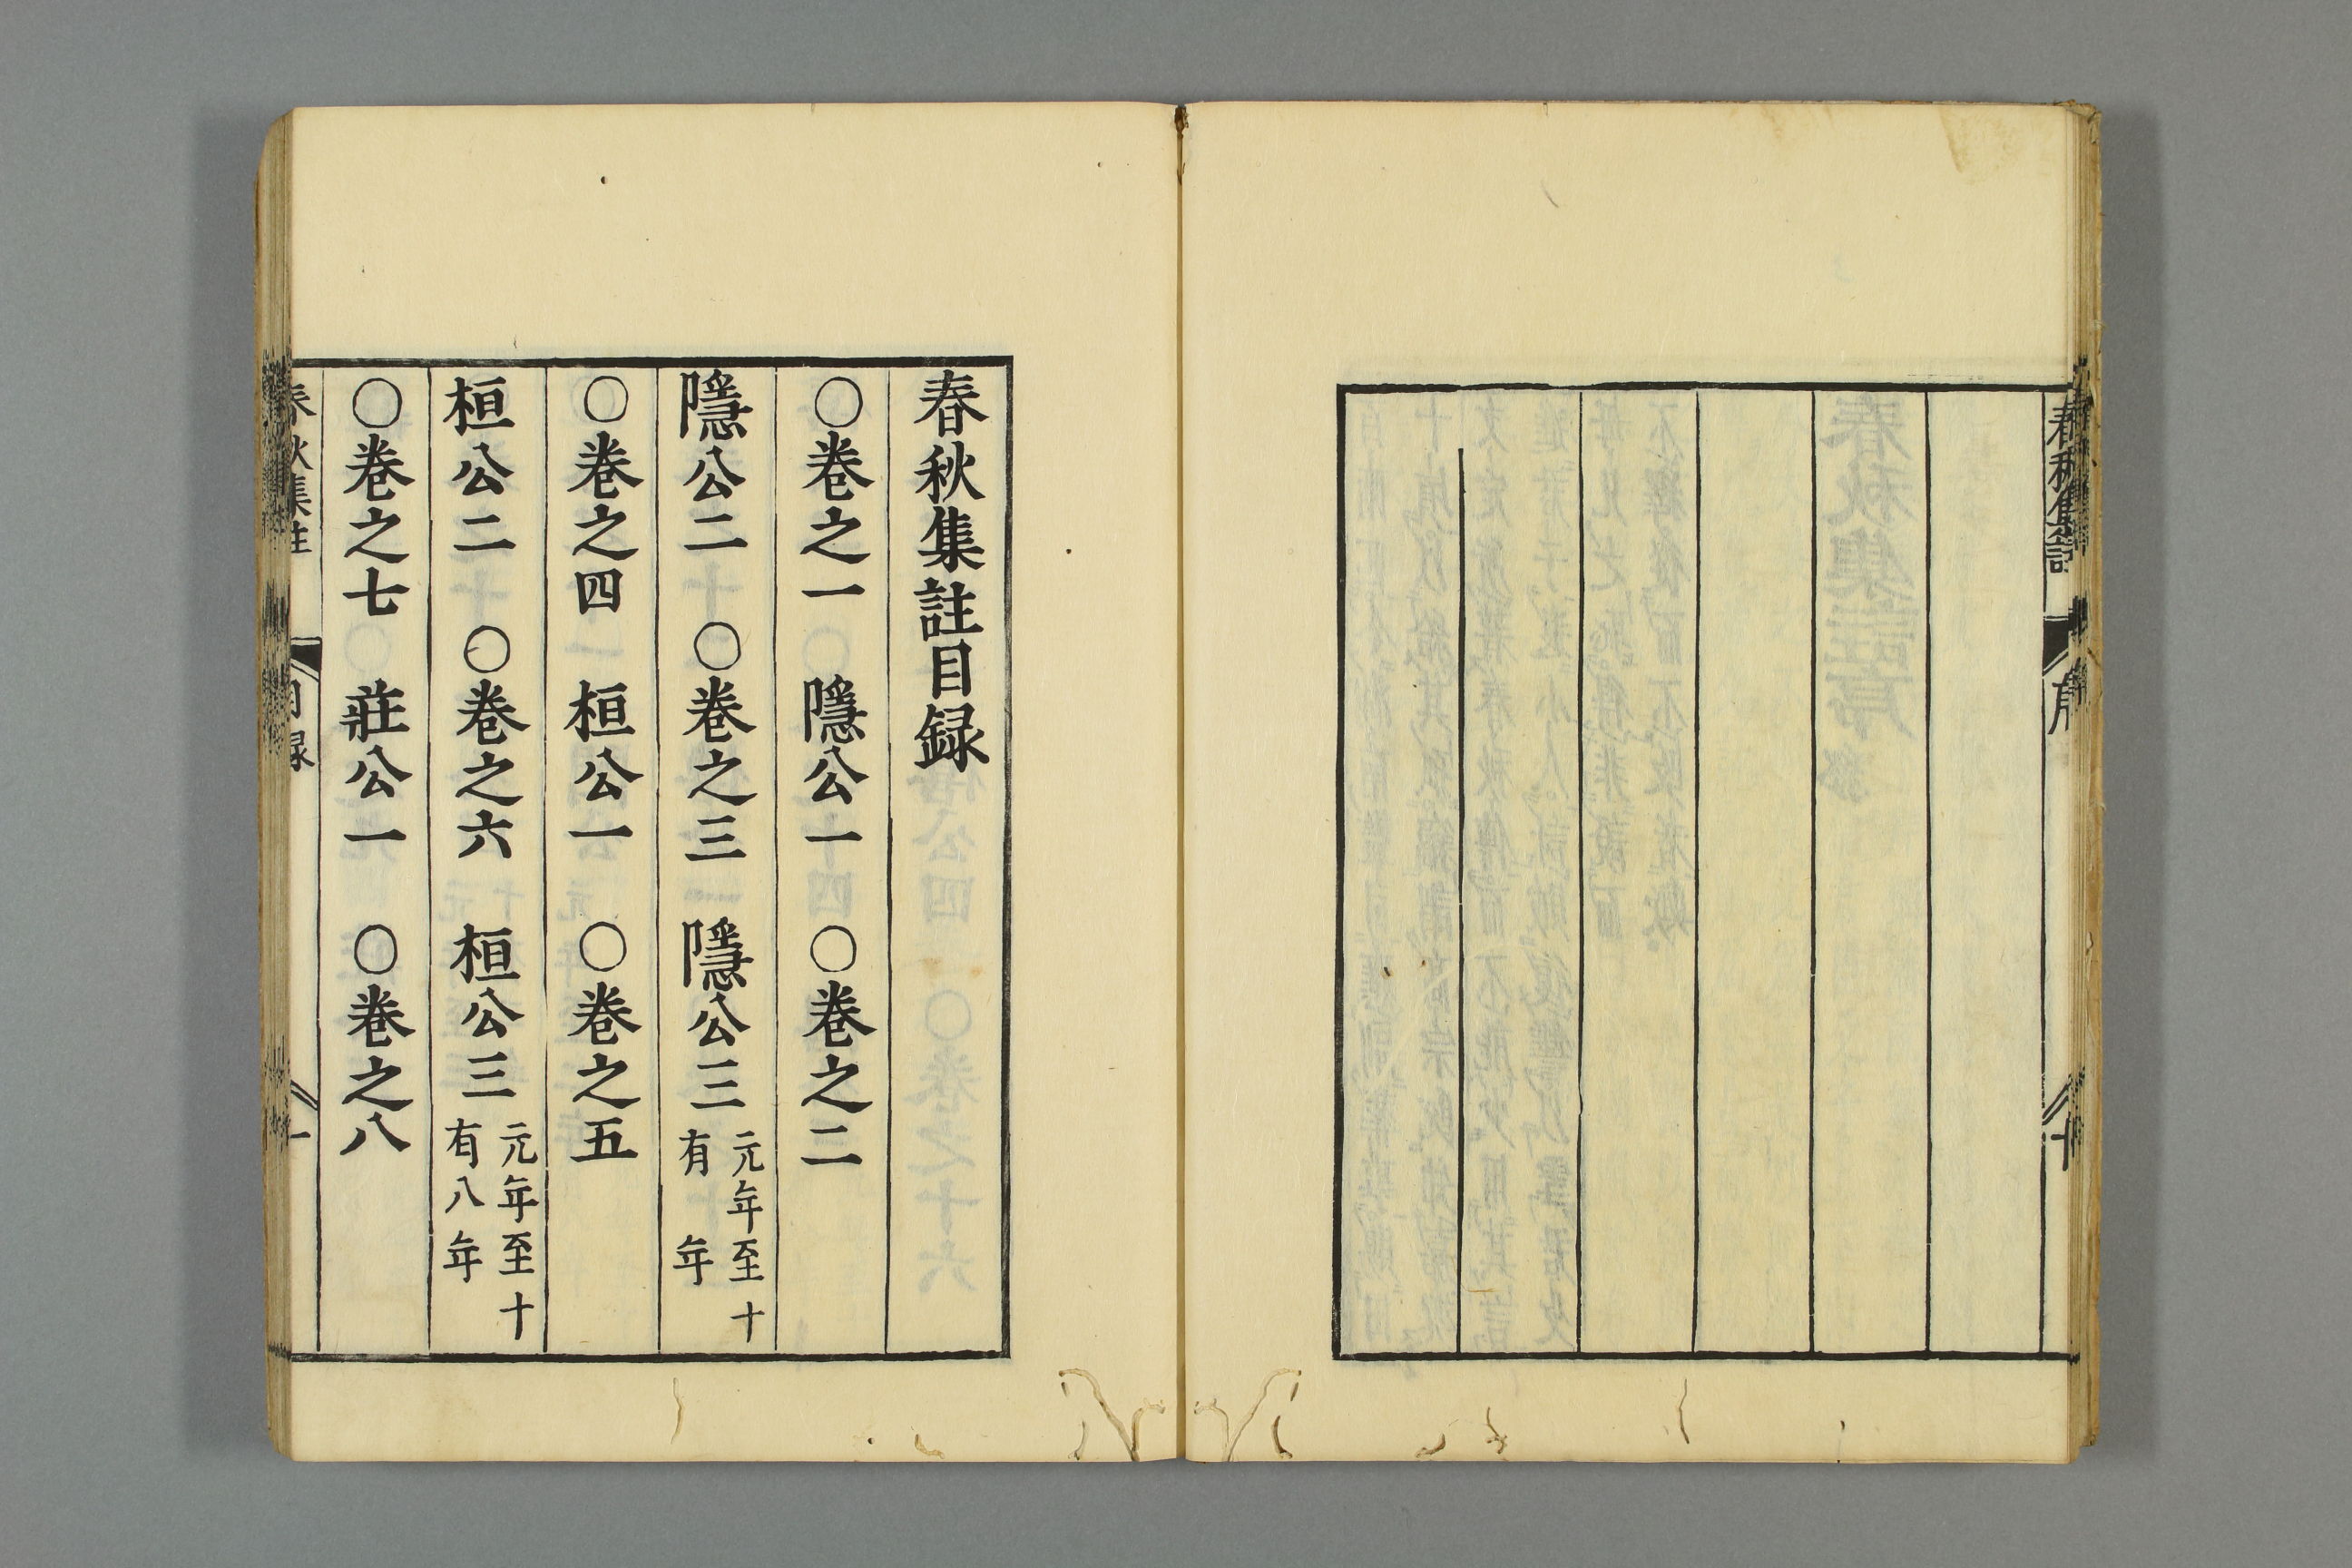 春秋集註
序
春秋集註目録
○巻之一　隱公一　○巻之二
隱公二　○巻之三　隱公三　元年至十
有　年
○巻之四　桓公一　○巻之五
桓公二　○巻之六　桓公三　元年至十
有八年
○巻之七　莊公一　○巻之八
春秋集註
目録
一